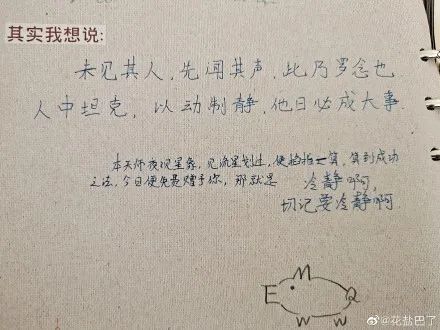 其实我想说:
未见其人,先闻其声,此乃罗念也
人中坦克,以动制静,他日必成大事
本天师夜观星象,见流星划过,便掐指一算,算到成功
之法,今日便免费赠予你,那就是 冷静啊,
切记要冷静啊
@花盐巴了